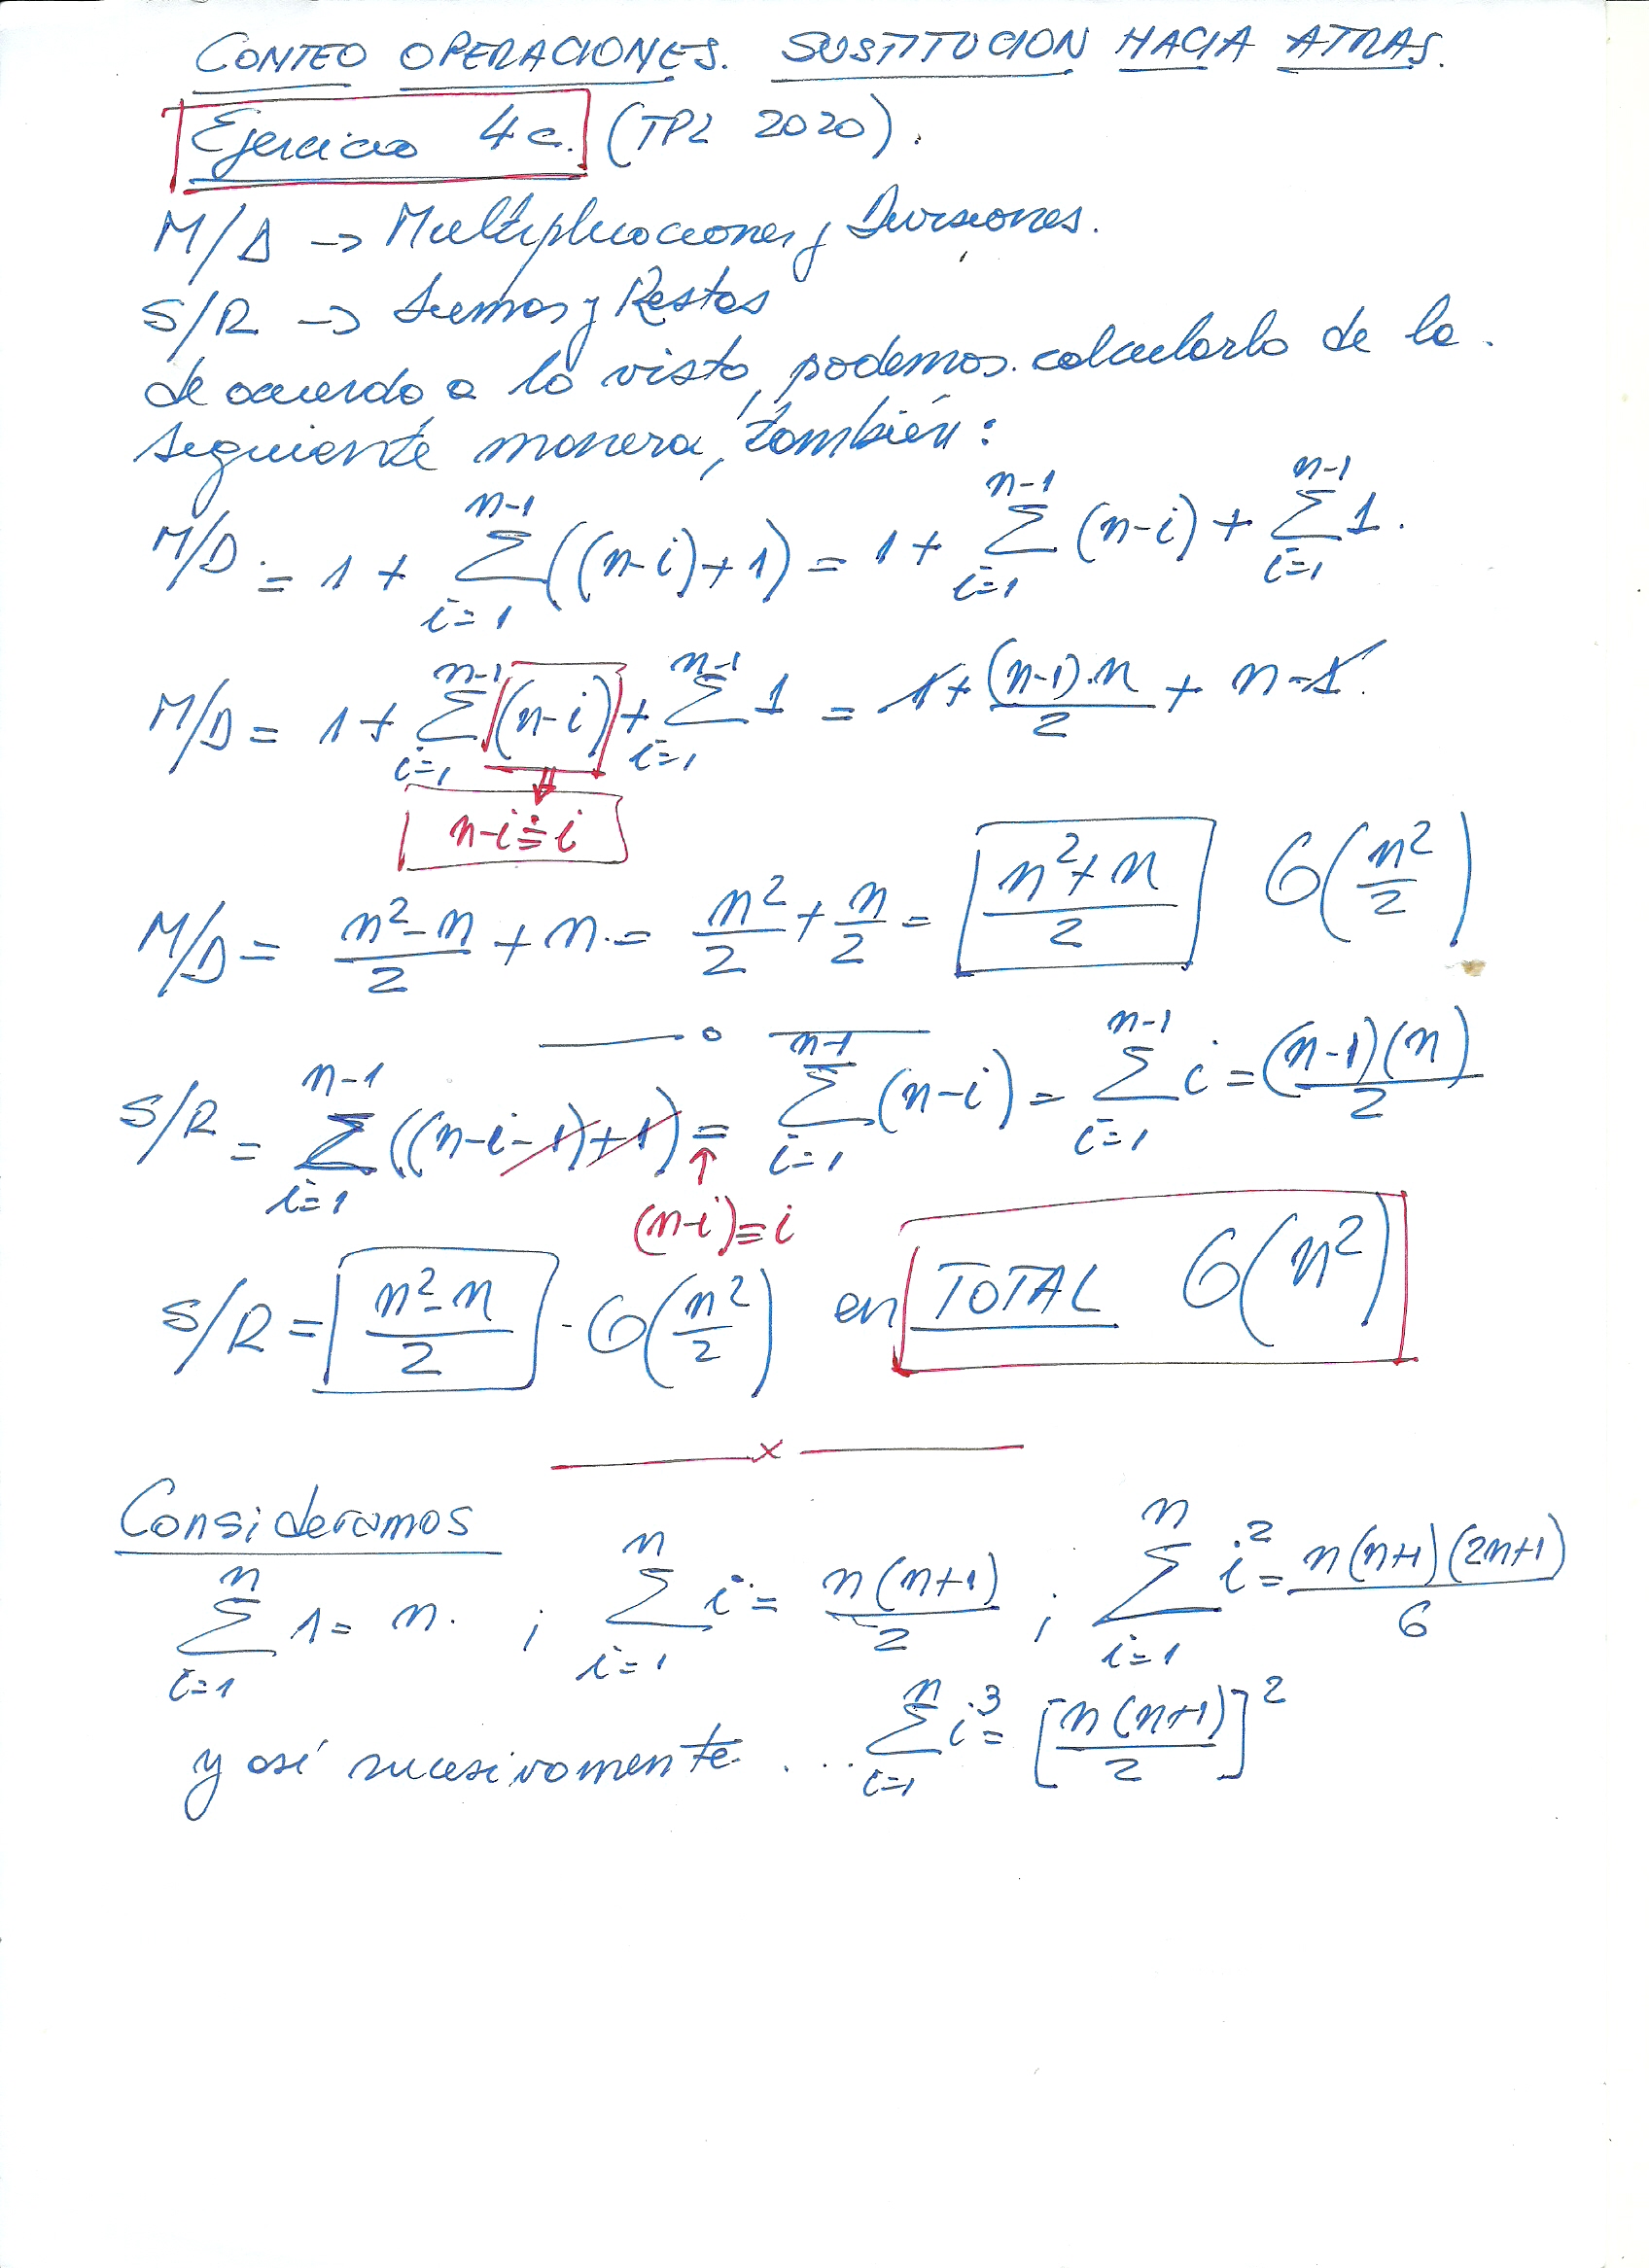 CONTEO OPERACIONES. SUSTITUCION HACIA ATRAS.
Ejercicio 4c. (TP2 2020).
M/D → Multiplicaciones y Divisiones.
S/R → Sumas y Restas
de acuerdo a lo visto, podemos calcularlo de la
siguiente manera, también:
M/D = 1 + \sum_{i=1}^{n-1} ((n-i)+1) = 1 + \sum_{i=1}^{n-1} (n-i) + \sum_{i=1}^{n-1} 1.
M/D = 1 + \sum_{i=1}^{n-1} (n-i) + \sum_{i=1}^{n-1} 1 = 1 + \frac{(n-1).n}{2} + n-1.
n-i ≡ i
M/D = \frac{n^2-n}{2} + n = \frac{n^2}{2} + \frac{n}{2} = \frac{n^2+n}{2} O(\frac{n^2}{2})
S/R = \sum_{i=1}^{n-1} ((n-i-1)+1) = \sum_{i=1}^{n-1} (n-i) = \sum_{i=1}^{n-1} i = \frac{(n-1)(n)}{2}
(n-i) ≡ i
S/R = \frac{n^2-n}{2} - O(\frac{n^2}{2}) en TOTAL O(n^2)
Consideramos
\sum_{i=1}^{n} 1 = n. ; \sum_{i=1}^{n} i = \frac{n(n+1)}{2} ; \sum_{i=1}^{n} i^2 = \frac{n(n+1)(2n+1)}{6}
y así sucesivamente ... \sum_{i=1}^{n} i^3 = [\frac{n(n+1)}{2}]^2